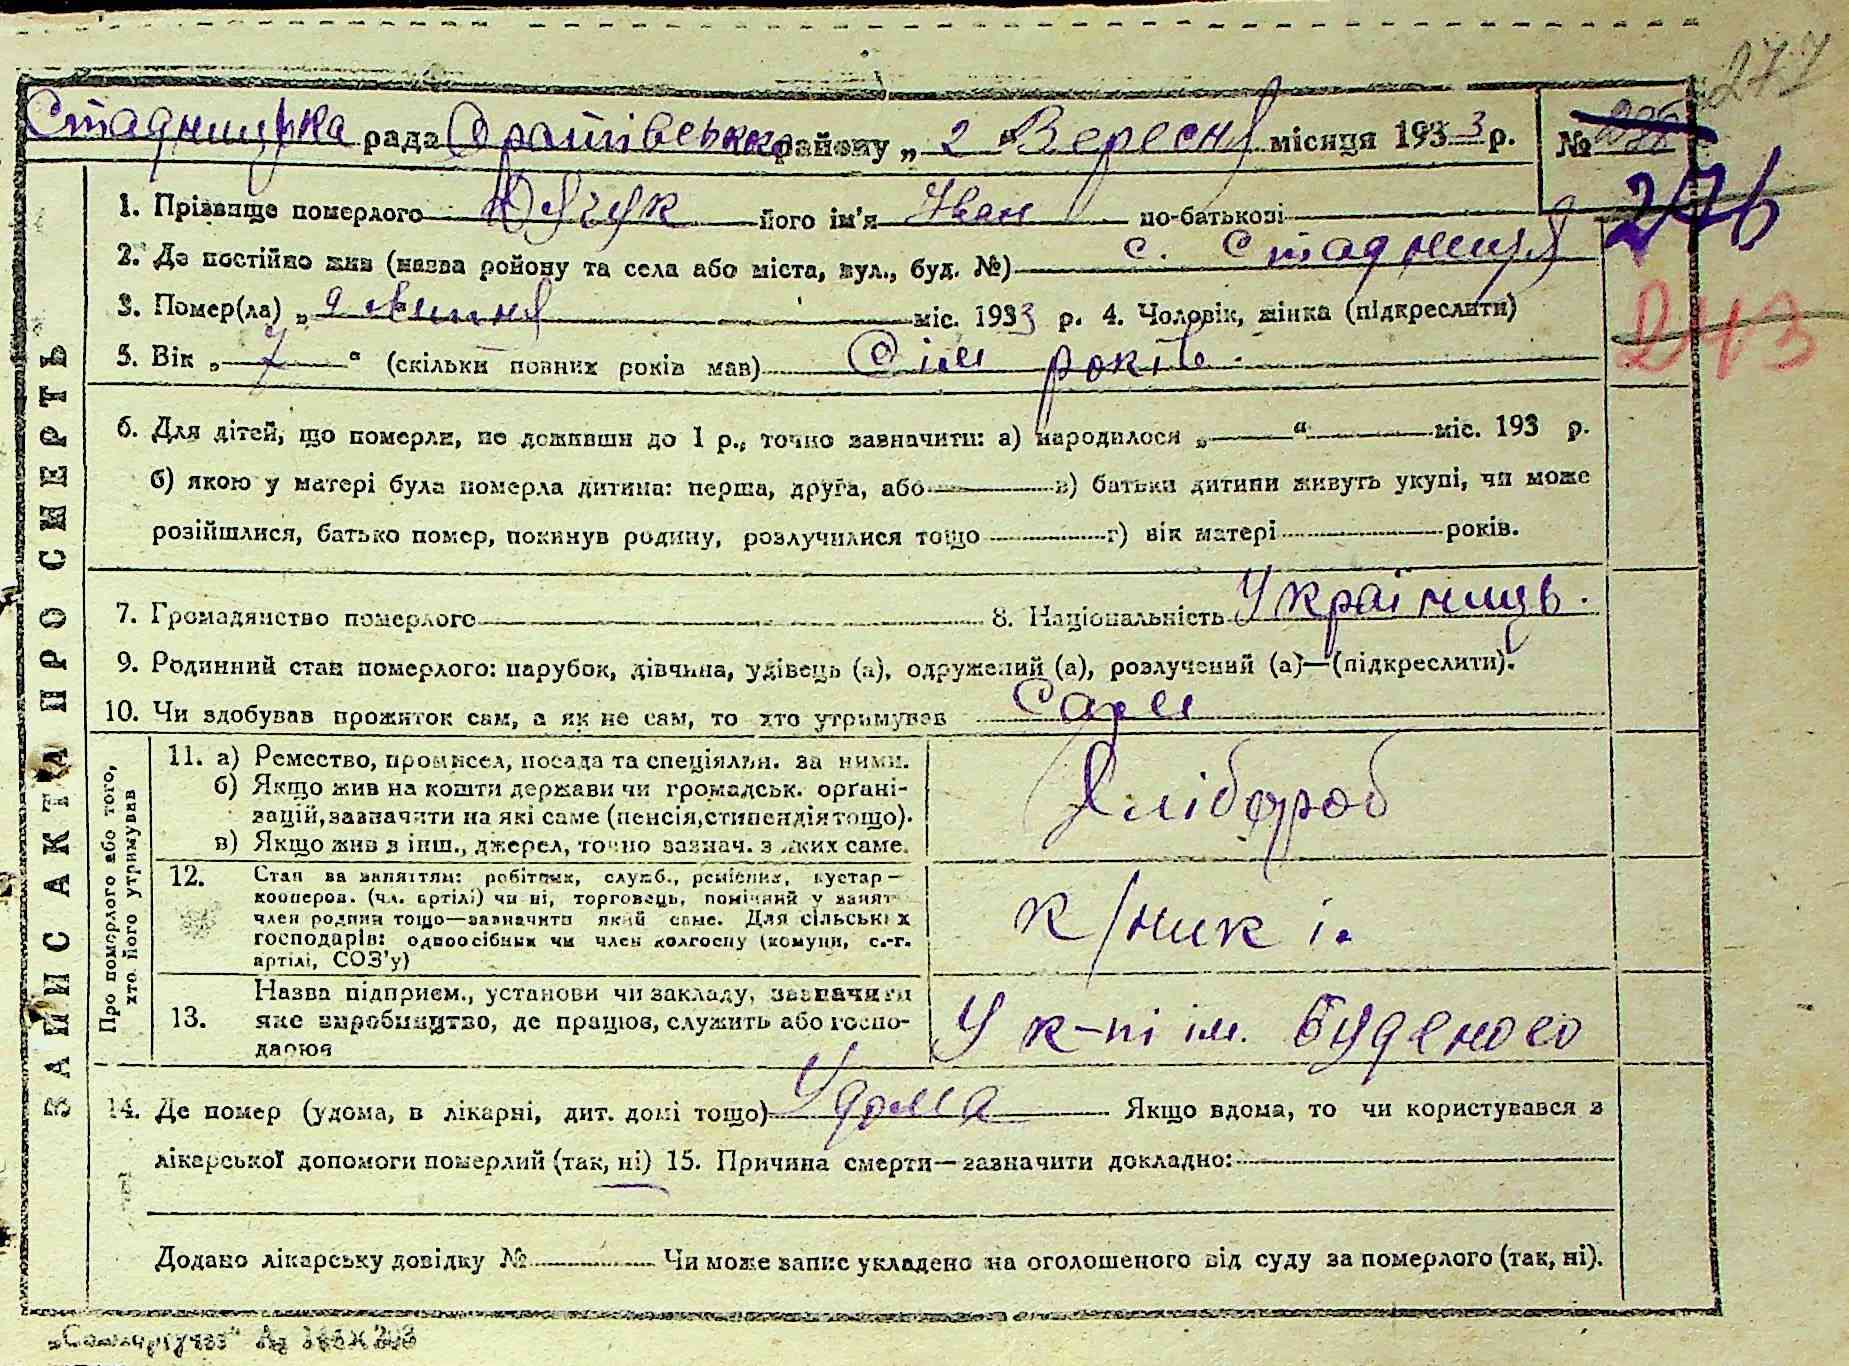 277
Стадницька рада Оратівського району „ 2 " Вересня місяця 1933 р. №
276
1. Прізвище померлого Дячук його ім'я Іван по-батькові
2. Де постійно жив (назва ройону та села або міста, вул., буд. №) с. Стадниця
3. Помер(ла) „ 9 Липня міс. 1933 р. 4. Чоловік, жінка (підкреслити)
243
5. Вік „ 7 " (скільки повних років мав) Сім років.
6. Для дітей, що померли, не доживши до 1 р., точно зазначити: а) народилося „ " міс. 193 р.
б) якою у матері була померла дитина: перша, друга, або в) батьки дитини живуть укупі, чи може
розійшлися, батько помер, покинув родину, розлучилися тощо г) вік матері років.
7. Громадянство померлого 8. Національність Українець.
9. Родинний стан померлого: парубок, дівчина, удівець (а), одружений (а), розлучений (а)—(підкреслити).
10. Чи здобував прожиток сам, а як не сам, то хто утримував Сам
ЗАПИС АКТА ПРО СМЕРТЬ
Про померлого або того, хто його утримував
11. а) Ремество, промисел, посада та спеціяльн. за ними.
б) Якщо жив на кошти держави чи громадськ. органі-
зацій, зазначити на які саме (пенсія, стипендія тощо).
в) Якщо жив з інш., джерел, точно зазнач. з яких саме.
Хлібороб
12. Стан за заняттям: робітник, служб., ремісник, кустар—
кооперов. (чл. артілі) чи ні, торговець, помічний у занят
член родини тощо—зазначити який саме. Для сільських
господарів: одноосібник чи член колгоспу (комуни, с.-г.
артілі, СОЗ'у)
к/ник і.
13. Назва підприєм., установи чи закладу, зазначити
яке виробництво, де працює, служить або госпо-
дарює
У к-пі ім. Буденого
14. Де помер (удома, в лікарні, дит. домі тощо) Удома Якщо вдома, то чи користувався з
лікарської допомоги померлий (так, ні) 15. Причина смерти—зазначити докладно:
Додано лікарську довідку № Чи може запис укладено на оголошеного від суду за померлого (так, ні).